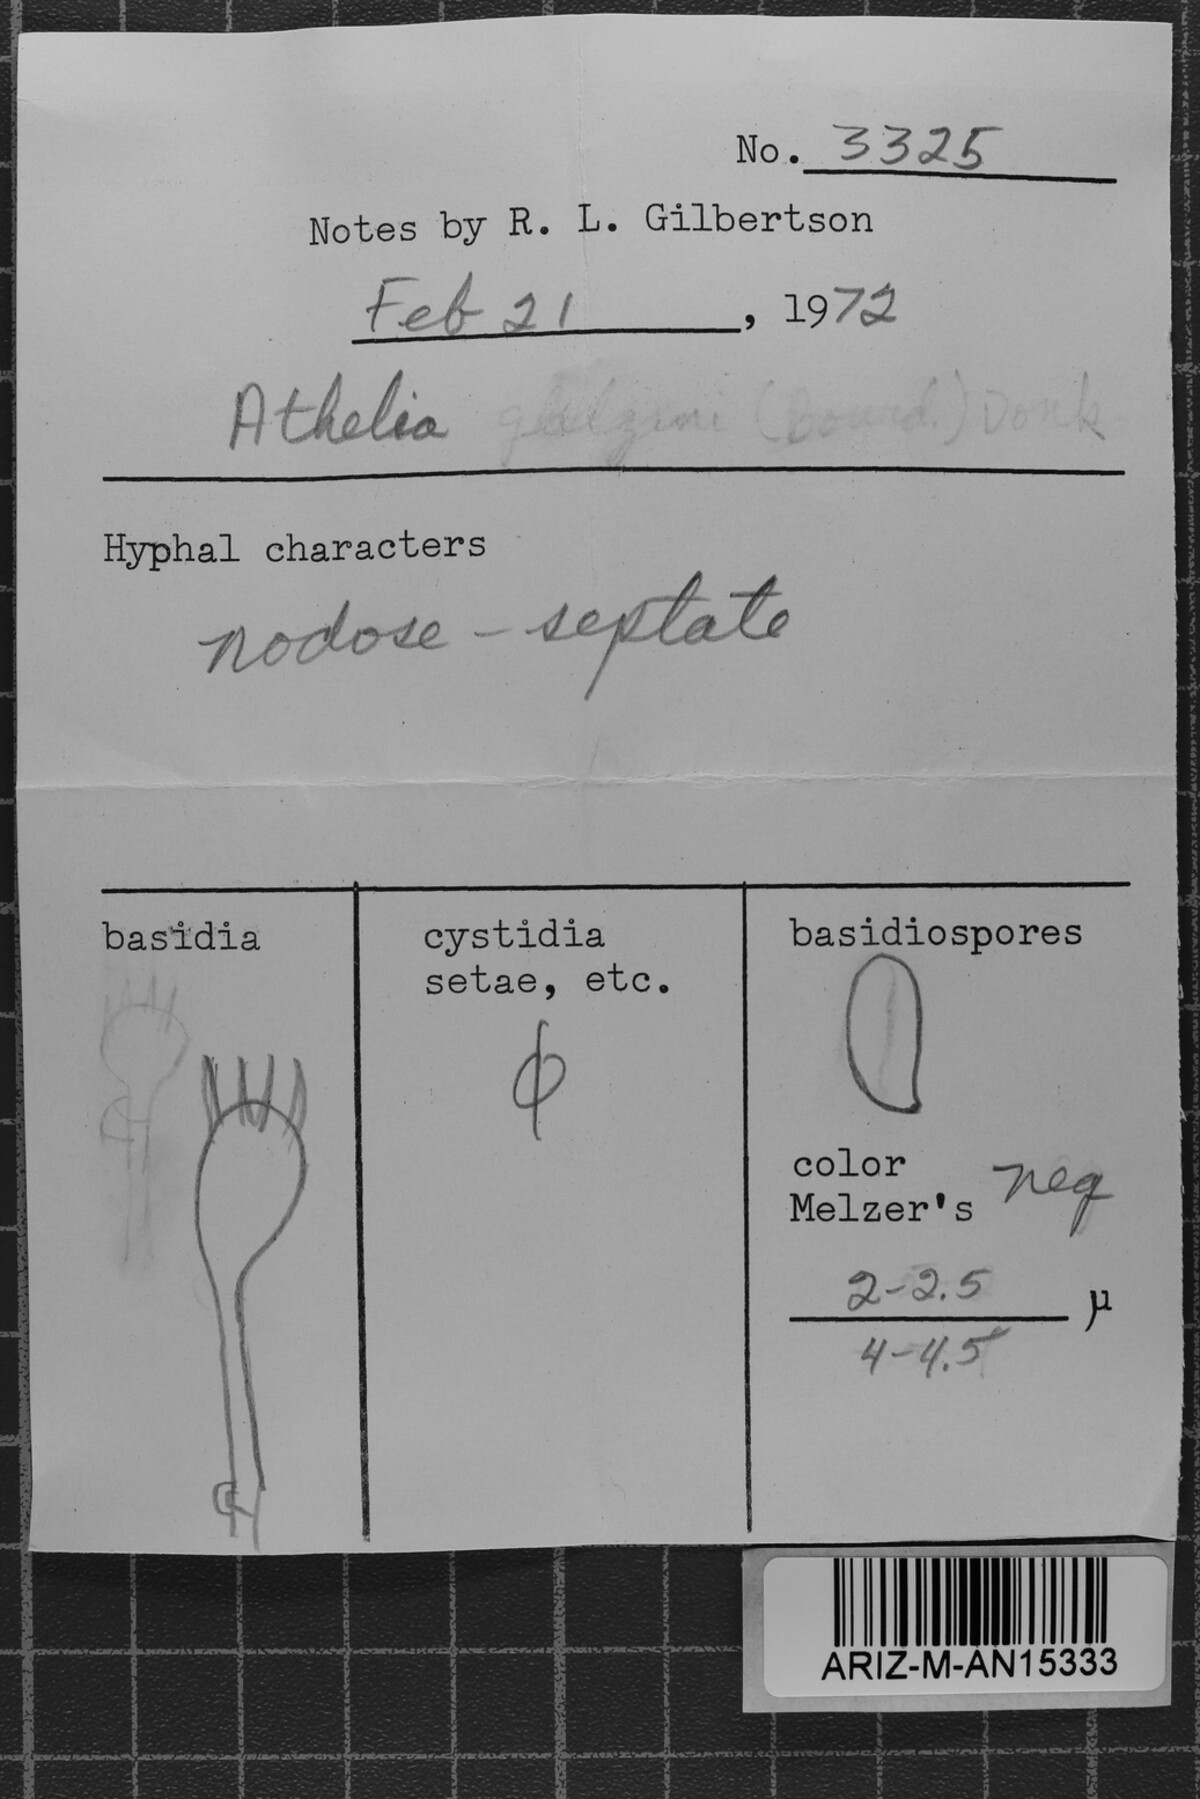 No. 3325
Notes by R. L. Gilbertson
Feb 21, 1972
Athelia galzini (Bourd.) Donk
Hyphal characters
nodose - septate
basidia
cystidia
setae, etc.
φ
basidiospores
color
Melzer's neg
2-2.5
μ
4-4.5
ARIZ-M-AN15333